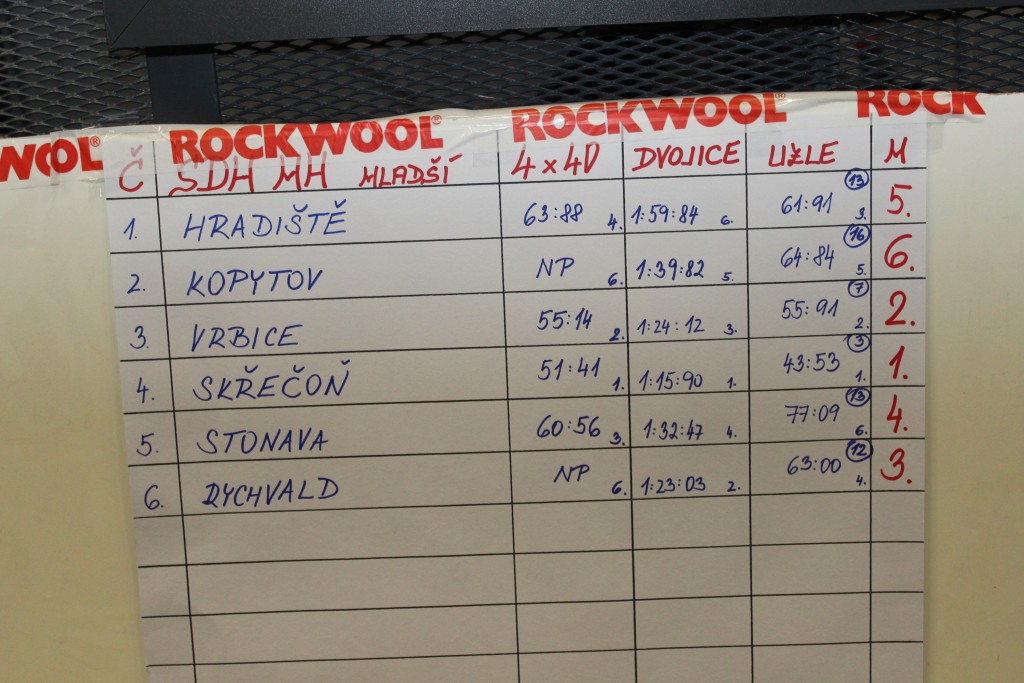 WOOL® ROCKWOOL® ROCKWOOL® ROCK
Č SDH MH MLADŠÍ 4x4D DVOJICE UZLE M
1. HRADIŠTĚ 63:88 4. 1:59:84 6. 61:91 13 3. 5.
2. KOPYTOV NP 6. 1:39:82 5. 64:84 16 5. 6.
3. VRBICE 55:14 2. 1:24:12 3. 55:91 7 2. 2.
4. SKŘEČOŇ 51:41 1. 1:15:90 1. 43:53 3 1. 1.
5. STONAVA 60:56 3. 1:32:47 4. 77:09 13 6. 4.
6. RYCHVALD NP 6. 1:23:03 2. 63:00 12 4. 3.